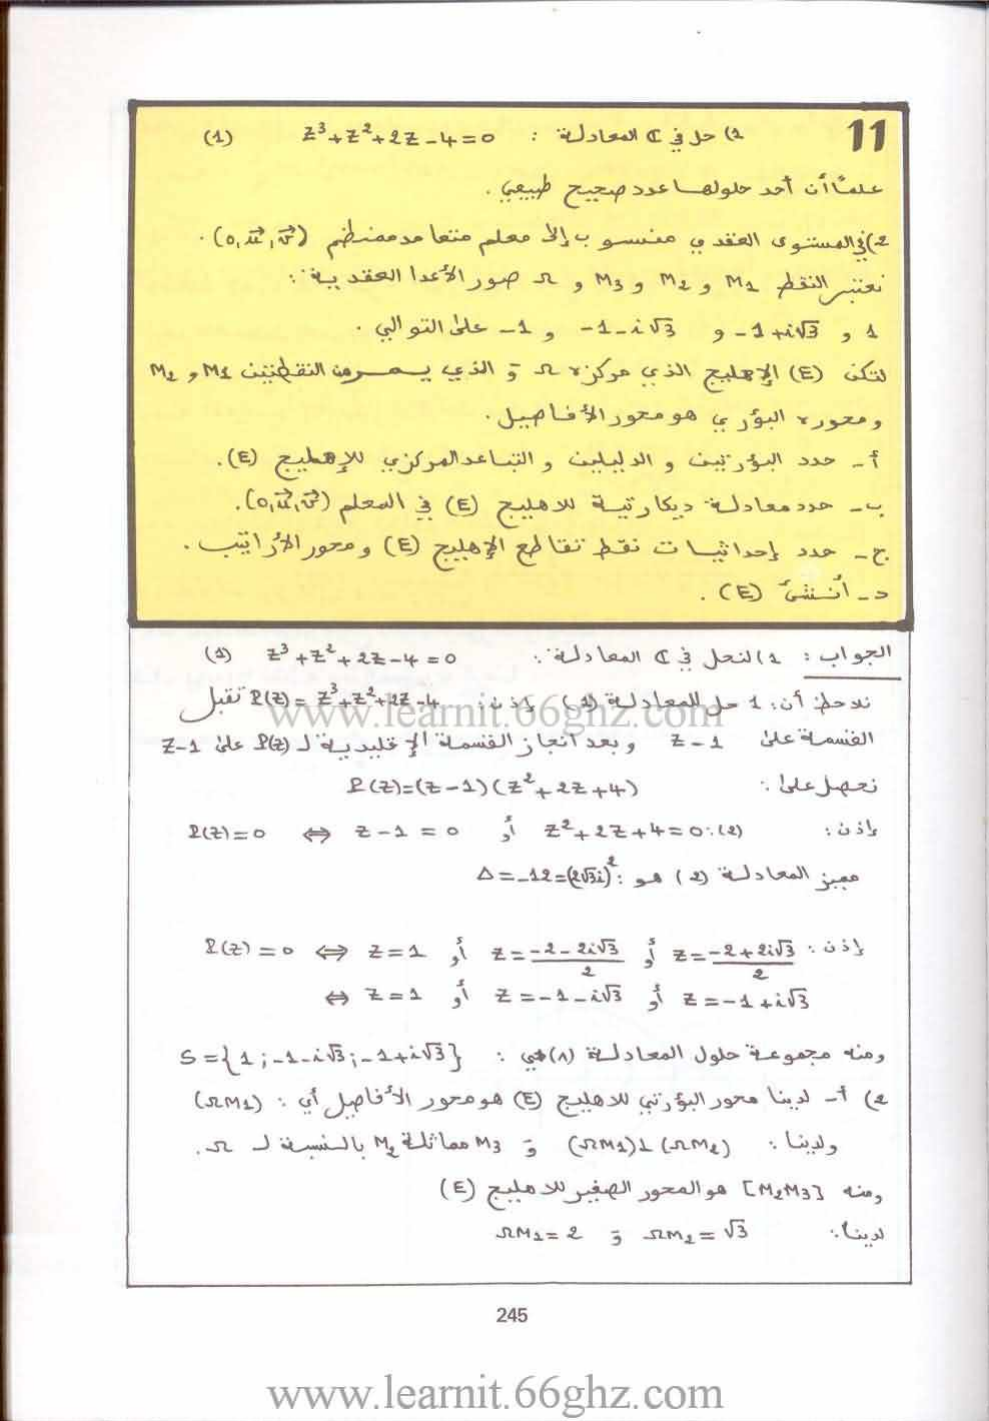 11
1) حل في ℂ المعادلة : z³+z²+2z-4=0 (1)
علمًا أن أحد حلولها عدد صحيح طبيعي .
2) في المستوى العقدي منسوب إلى معلم متعامد ممنظم (o,u⃗,v⃗) .
نعتبر النقط M1 و M2 و M3 و Ω صور الأعداد العقدية :
1 و -1+i√3 و -1-i√3 و -1 على التوالي .
لتكن (E) الإهليج الذي مركزه Ω و الذي يمر من النقطتين M1 و M2
و محوره البؤري هو محور الأفاصيل .
أ- حدد البؤرتين و الدليلين و التباعد المركزي للإهليج (E) .
ب- حدد معادلة ديكارتية للاهليج (E) في المعلم (o,u⃗,v⃗) .
ج- حدد إحداثيات نقط تقاطع الإهليج (E) و محور الأراتيب .
د- أنشئ (E) .
الجواب : 1) لنحل في ℂ المعادلة : z³+z²+2z-4=0 (1)
نلاحظ أن : 1 حل للمعادلة (1) إذن : P(z)= z³+z²+2z-4 تقبل
القسمة على z-1 وبعد انجاز القسمة الإقليدية لـ P(z) على z-1
نحصل على : P(z)=(z-1)(z²+2z+4)
إذن : P(z)=0 ⇔ z-1=0 أو z²+2z+4=0 :(2)
مميز المعادلة (2) هو : Δ=-12=(2√3i)²
إذن : P(z)=0 ⇔ z=1 أو z=(-2-2i√3)/2 أو z=(-2+2i√3)/2
⇔ z=1 أو z=-1-i√3 أو z=-1+i√3
ومنه مجموعة حلول المعادلة (1) هي : S={1;-1-i√3;-1+i√3}
2) أ- لدينا محور البؤرتي للاهليج (E) هو محور الأفاصيل أي : (ΩM1)
ولدينا : (ΩM1)⊥(ΩM2) و M3 مماثلة M2 بالنسبة لـ Ω .
ومنه [M2M3] هو المحور الصغير للاهليج (E)
لدينا : ΩM1=2 و ΩM2=√3
245
www.learnit.66ghz.com
www.learnit.66ghz.com